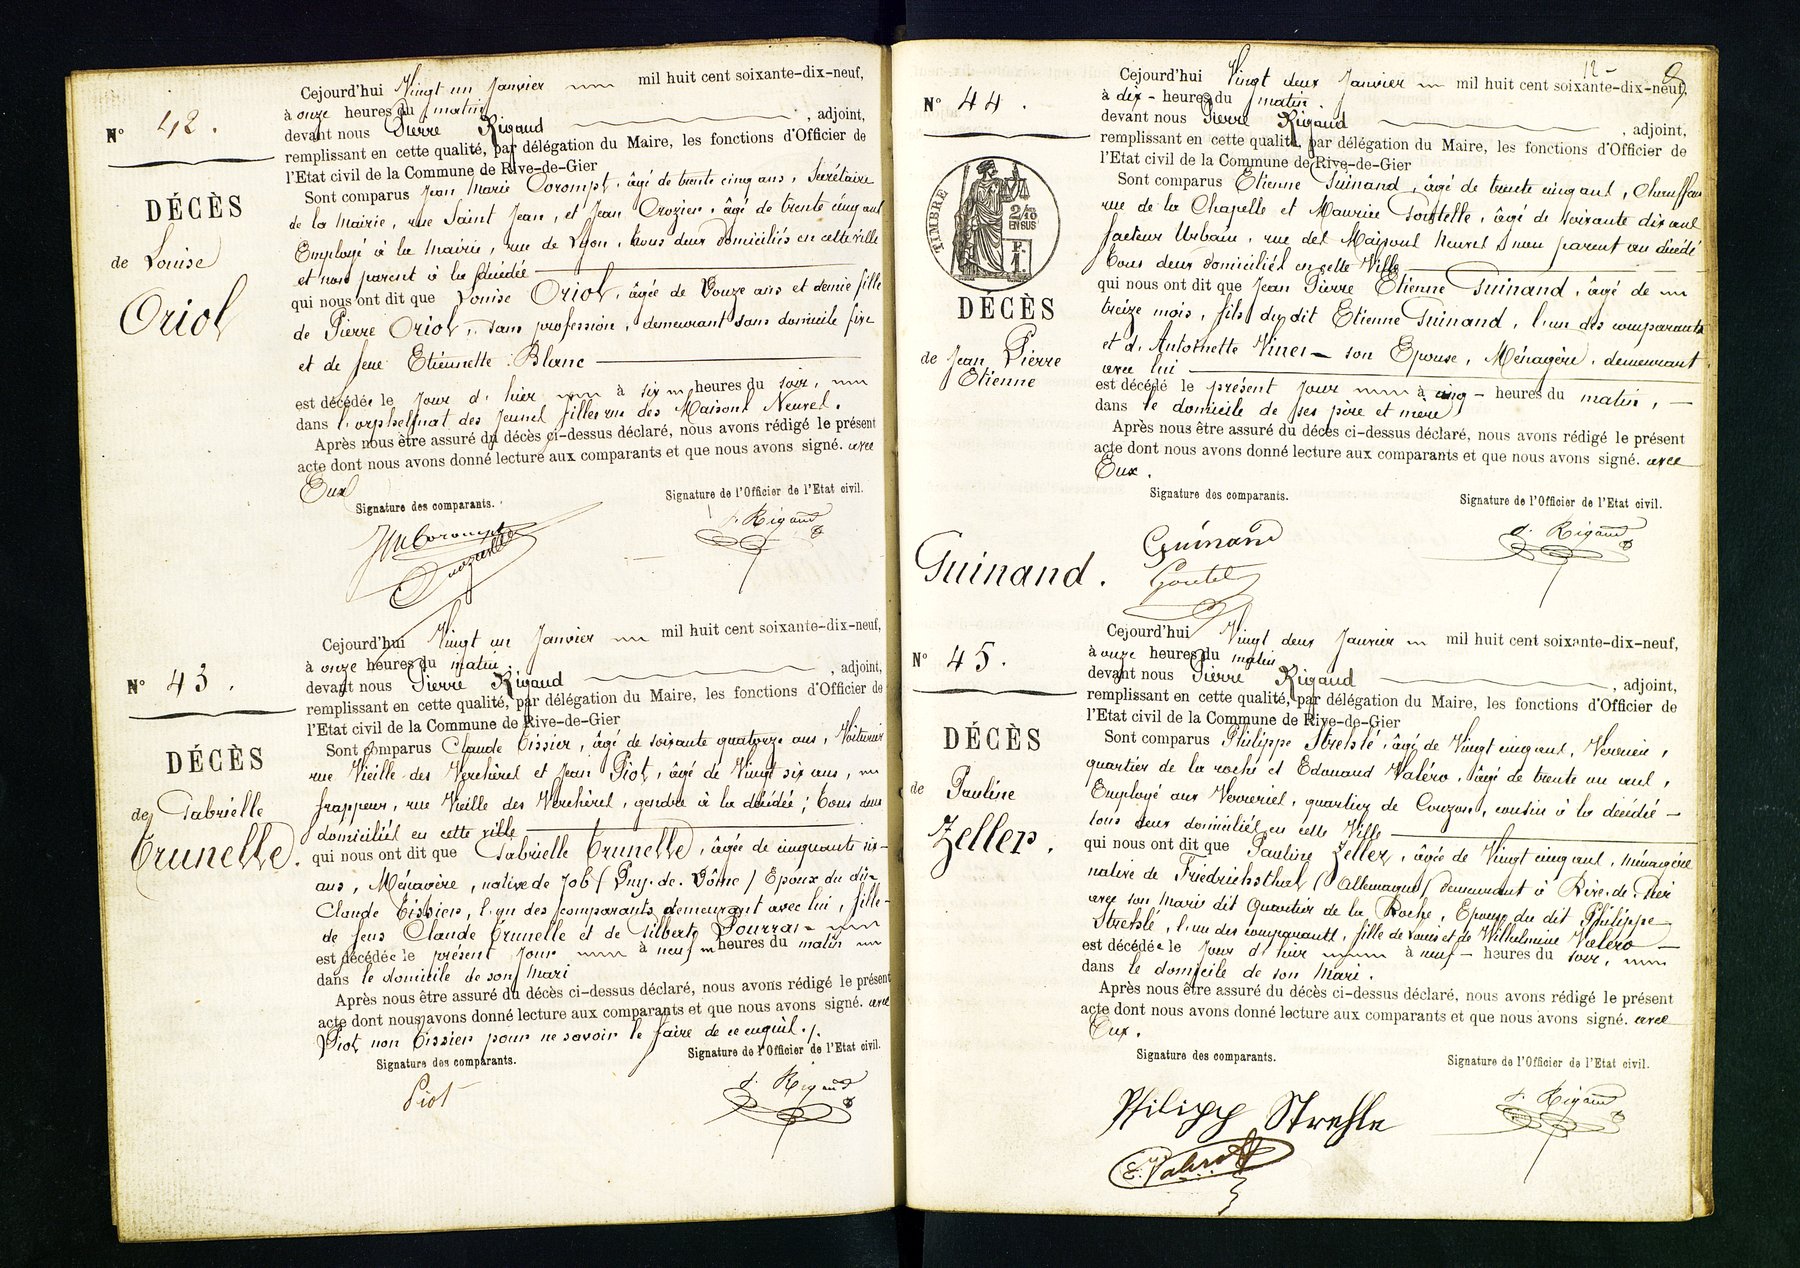 N° 42.
DÉCÈS
de Louise
Oriol
Cejourd'hui Vingt un Janvier mil huit cent soixante-dix-neuf,
à onze heures du matin
devant nous Pierre Rigaud , adjoint,
remplissant en cette qualité, par délégation du Maire, les fonctions d'Officier de
l'Etat civil de la Commune de Rive-de-Gier
Sont comparus Jean Marie Corompt, âgé de trente cinq ans, Secrétaire
de la Mairie, rue Saint Jean, et Jean Crozier, âgé de trente cinq ans
Employé à la Mairie, rue de Lyon, tous deux domiciliés en cette ville
et non parent à la décédée
qui nous ont dit que Louise Oriol, âgée de Douze ans et demie fille
de Pierre Oriol, sans profession, demeurant sans domicile fixe
et de feue Etiennette Blanc
est décédée le Jour d'hier à six heures du soir,
dans l'orphelinat des Jeunes filles rue des Maisons Neuves.
Après nous être assuré du décès ci-dessus déclaré, nous avons rédigé le présent
acte dont nous avons donné lecture aux comparants et que nous avons signé. avec
Eux
Signature des comparants. Signature de l'Officier de l'Etat civil.
JM Corompt P. Rigaud
N° 43.
DÉCÈS
de Gabrielle
Grunelle.
Cejourd'hui Vingt un Janvier mil huit cent soixante-dix-neuf,
à onze heures du matin
devant nous Pierre Rigaud , adjoint,
remplissant en cette qualité, par délégation du Maire, les fonctions d'Officier de
l'Etat civil de la Commune de Rive-de-Gier
Sont comparus Claude Tissier, âgé de soixante quatorze ans, Voiturier
rue Vieille des Verchères et Jean Piot, âgé de Vingt six ans,
frappeur, rue Vieille des Verchères, gendre à la décédée; tous deux
domiciliés en cette ville
qui nous ont dit que Gabrielle Grunelle, âgée de cinquante six
ans, Ménagère, native de Job (Puy-de-Dôme) Epoux du dit
Claude Tissier, l'un des comparants demeurant avec lui, fille
de feus Claude Grunelle et de Gilberte Pourrat
est décédée le présent Jour à neuf heures du matin
dans le domicile de son Mari
Après nous être assuré du décès ci-dessus déclaré, nous avons rédigé le présent
acte dont nous avons donné lecture aux comparants et que nous avons signé. avec
Piot non Tissier pour ne savoir le faire de ce enquis.
Signature des comparants. Signature de l'Officier de l'Etat civil.
Piot P. Rigaud
12
N° 44.
TIMBRE
2/10
EN SUS
DÉCÈS
de Jean Pierre
Etienne
Guinand.
Cejourd'hui Vingt deux Janvier mil huit cent soixante-dix-neuf,
à dix heures du matin
devant nous Pierre Rigaud , adjoint,
remplissant en cette qualité, par délégation du Maire, les fonctions d'Officier de
l'Etat civil de la Commune de Rive-de-Gier
Sont comparus Etienne Guinand, âgé de trente cinq ans, Chauffeur
rue de la Chapelle et Maurice , âgé de soixante dix ans
facteur Urbain, rue des Maisons Neuves, non parent au décédé
tous deux domiciliés en cette Ville
qui nous ont dit que Jean Pierre Etienne Guinand, âgé de
treize mois, fils du dit Etienne Guinand, l'un des comparants
et d'Antoinette son Epouse, Ménagère, demeurant
avec lui
est décédé le présent Jour à cinq heures du matin,
dans le domicile de ses père et mère
Après nous être assuré du décès ci-dessus déclaré, nous avons rédigé le présent
acte dont nous avons donné lecture aux comparants et que nous avons signé. avec
Eux.
Signature des comparants. Signature de l'Officier de l'Etat civil.
Guinand P. Rigaud
N° 45.
DÉCÈS
de Pauline
Zeller.
Cejourd'hui Vingt deux Janvier mil huit cent soixante-dix-neuf,
à onze heures du matin
devant nous Pierre Rigaud , adjoint,
remplissant en cette qualité, par délégation du Maire, les fonctions d'Officier de
l'Etat civil de la Commune de Rive-de-Gier
Sont comparus Philippe Strehlé, âgé de Vingt cinq ans, Verrier,
quartier de la roche et Edouard Valéro, âgé de trente un ans,
Employé aux Verreries, quartier de Couzon, cousin à la décédée
tous deux domiciliés en cette Ville
qui nous ont dit que Pauline Zeller, âgée de Vingt cinq ans, ménagère
native de Friedrichsthal (Allemagne) demeurant à Rive-de-Gier
avec son Mari dit Quartier de la Roche, Epouse du dit Philippe
Strehlé, l'un des comparants, fille de Louis et de Wilhelmine Valéro
est décédée le Jour d'hier à neuf heures du soir,
dans le domicile de son Mari.
Après nous être assuré du décès ci-dessus déclaré, nous avons rédigé le présent
acte dont nous avons donné lecture aux comparants et que nous avons signé. avec
Eux.
Signature des comparants. Signature de l'Officier de l'Etat civil.
Philipp Strehle P. Rigaud
E. Valero